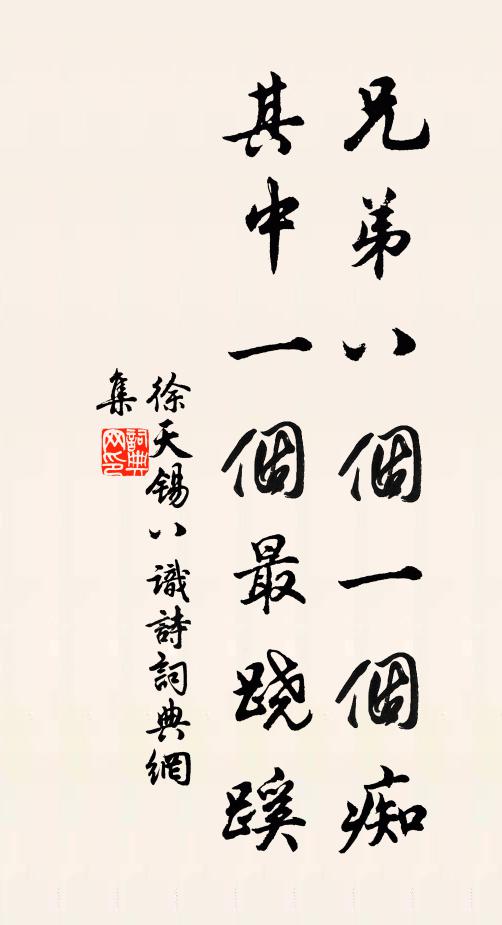 兄弟八個一個痴
其中一個最蹺蹊
徐天錫八識詩詞典網
集
詞典網印